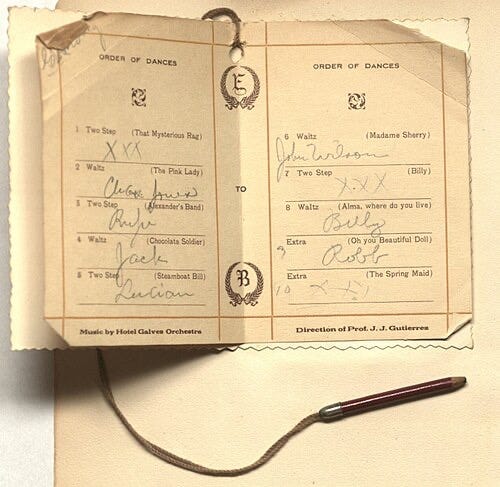 ORDER OF DANCES
1 Two Step (That Mysterious Rag)
XXX
2 Waltz (The Pink Lady)
Jones
3 Two Step (Alexander's Band)
Rufe
4 Waltz (Chocolate Soldier)
Jack
5 Two Step (Steamboat Bill)
Lucian
Music by Hotel Galvez Orchestra
E
TO
B
ORDER OF DANCES
6 Waltz (Madame Sherry)
John Wilson
7 Two Step (Billy)
X.X X
8 Waltz (Alma, where do you live)
Billy
Extra (Oh you Beautiful Doll)
9 Robb
Extra (The Spring Maid)
10 X X X
Direction of Prof. J. J. Gutierrez